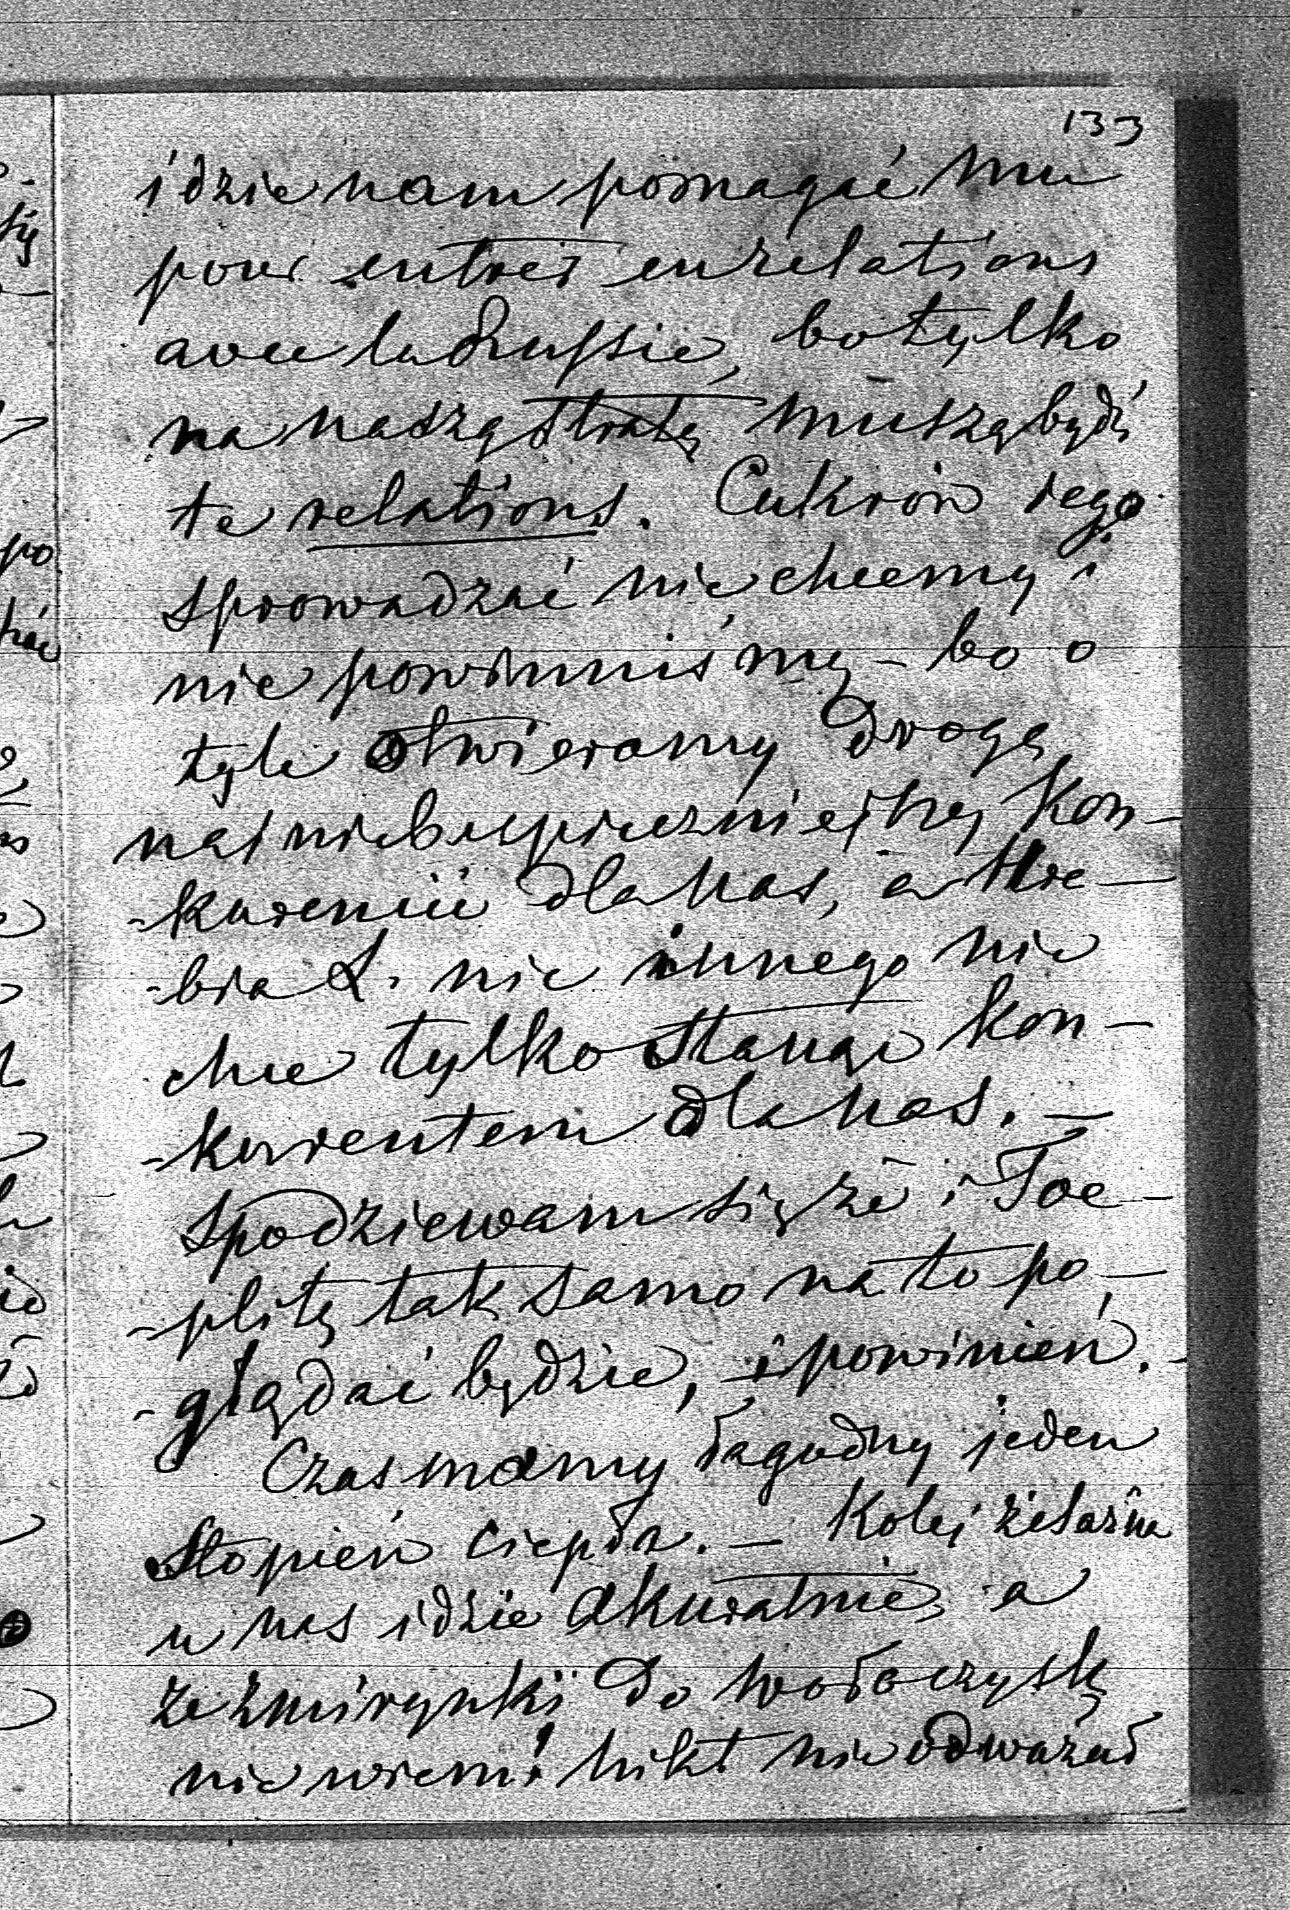 133
idzie nam pomagać mu
pour entrer en relations
avec la Russie, bo tylko
na naszą stratę muszą bydź
te relations. Cukrów jego
sprowadzać nie chcemy i
nie powinniśmy – bo o
tyle otwieramy drogę
najniebespieczniejszej kon-
-kurencii dla nas, a Hra-
-bia L. nic innego nie
chce tylko stanąć kon-
-kurentem dla nas. –
Spodziewam się że i Toe-
-plitz tak samo na to po-
-glądać będzie, i powinien. -
Czas mamy łagodny jeden
Stopień ciepła. – Kolej żelazna
u nas idzie akuratnie, a
ze Żmirynki do Wołoczysk
nie wiem! nikt nie odważał